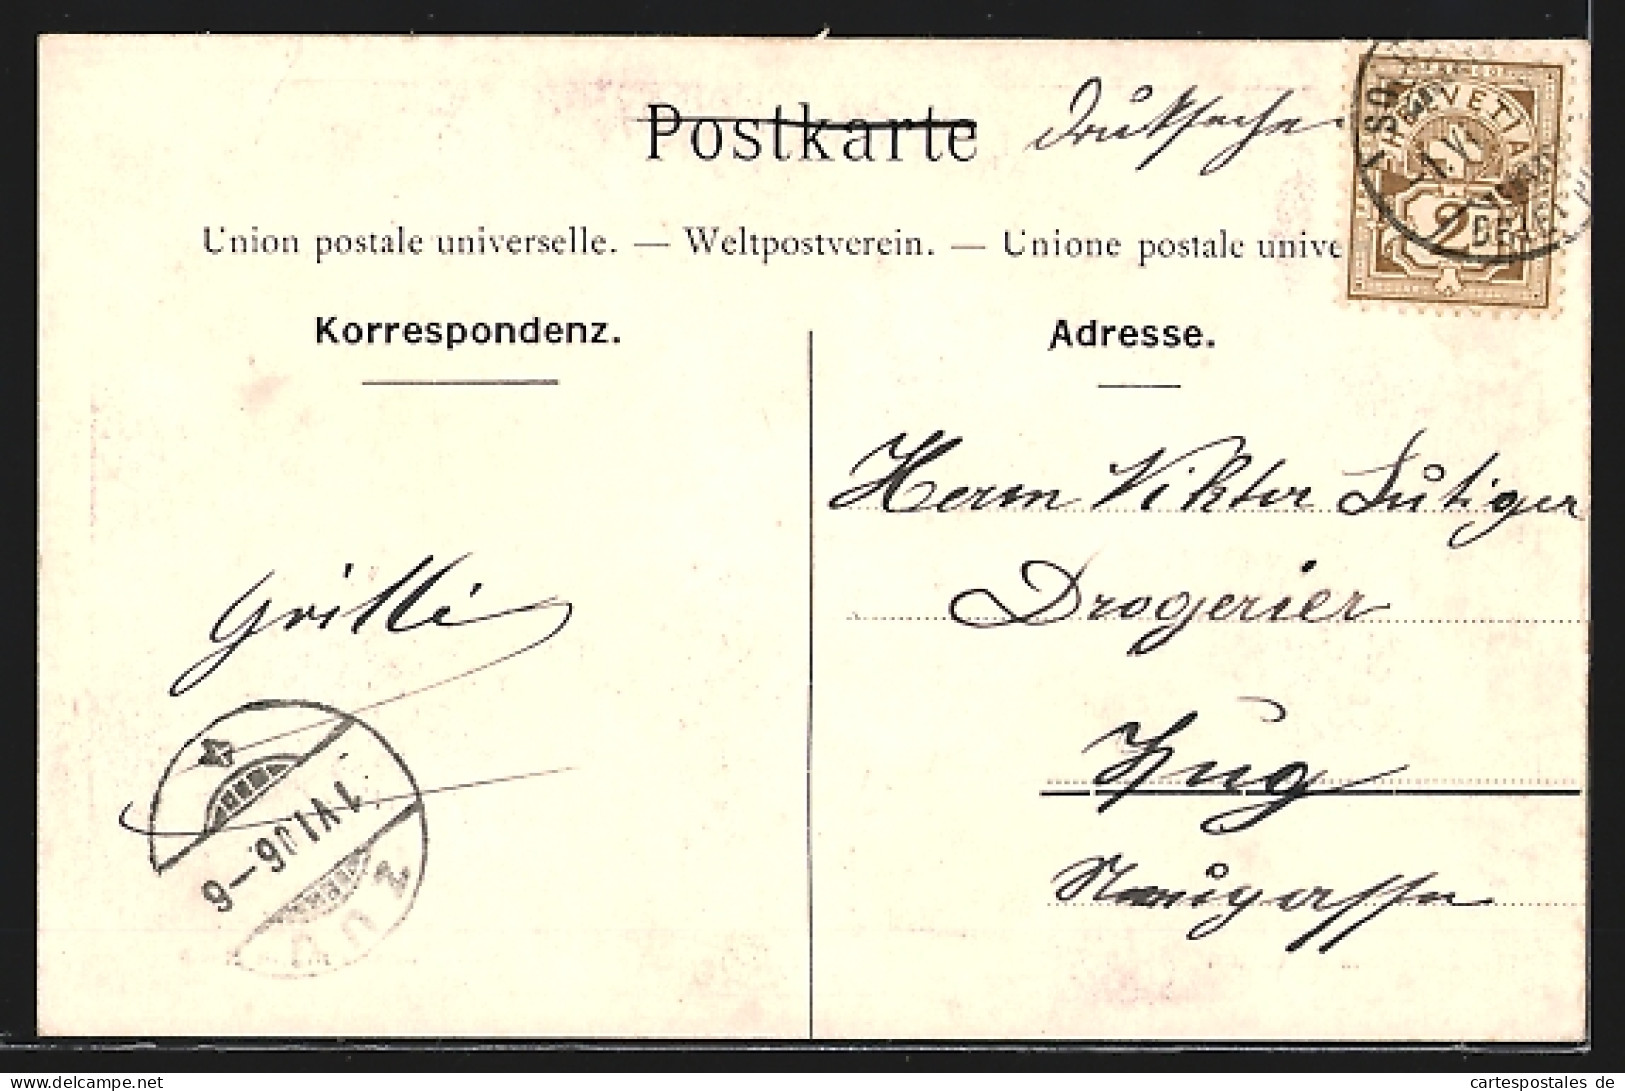 Postkarte Drucksache
Union postale universelle. — Weltpostverein. — Unione postale unive
HELVETIA
2
Korrespondenz.
Adresse.
Herrn Viktor Lutiger
Drogerier
Zug
Neugasse
1 VI 06–6
ZUG
cartespostales de